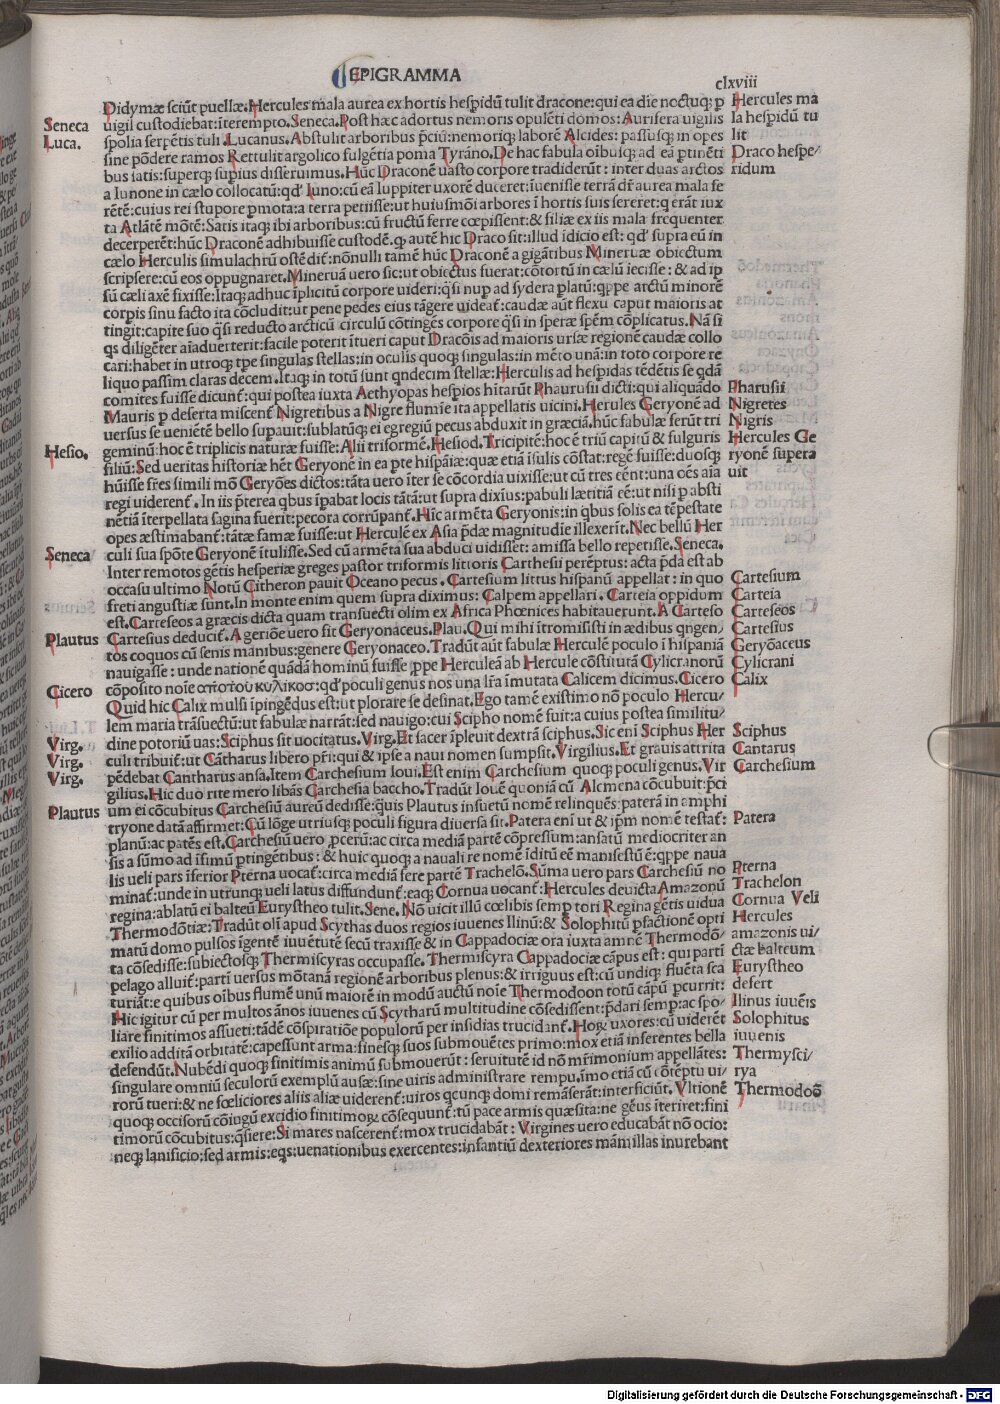 EPIGRAMMA
clxviii
Didymæ sciūt puellæ. Hercules mala aurea ex hortis hespidū tulit dracone: qui ea die noctuq; p
uigil custodiebat: īterempto. Seneca. Post hæc adortus nemoris opulēti domos: Aurifera uigilis
spolia serpētis tuli. Lucanus. Abstulit arboribus p̄ciū: nemoriq; laborē Alcides: passusq; in opes
sine pōdere ramos Rettulit argolico fulgētia poma Tyrāno. De hac fabula oībusq; ad eā ptinēti
bus satis: superq; supius disseruimus. Hūc Draconē uasto corpore tradiderūt: inter duas arctos
a Iunone in cælo collocatū: qđ Iuno: cū eā Iuppiter uxorē duceret: iuenisse terrā dr̄ aurea mala fe
rētē: cuius rei stupore pmota: a terra petiisse: ut huiusmōi arbores ī hortis suis sereret: q erāt iux
ta Atlātē mōtē: Satis itaq; ibi arboribus: cū fructū ferre cœpissent: & filiæ ex iis mala frequenter
decerperēt: hūc Draconē adhibuisse custodē. qp autē hic Draco sit: illud īdicio est: qđ supra eū in
cælo Herculis simulachrū ostēdit̄: nōnulli tamē hūc Draconē a gigātibus Mineruæ obiectum
scripsere: cū eos oppugnaret. Mineruā uero sic: ut obiectus fuerat: cōtortū in cælū iecisse: & ad ip
sū cæli axē fixisse: Itaq; adhuc īplicitū corpore uideri: q̄si nup ad sydera platū: qppe arctū minorē
corpis sinu facto ita cōcludit: ut pene pedes eius tāgere uideat̄: caudæ aūt flexu caput maioris at
tingit: capite suo q̄si reducto arcticū circulū cōtingēs corpore q̄si in speræ spēm cōplicatus. Nā si
qs diligēter aīaduerterit: facile poterit ītueri caput Dracōis ad maioris ursæ regionē caudæ collo
cari: habet in utroq; tpe singulas stellas: in oculis quoq; singulas: in mēto unā: in toto corpore re
liquo passim claras decem. Itaq; in totū sunt qndecim stellæ: Herculis ad hespidas tēdētis se qdā
comites fuisse dicunt̄: qui postea iuxta Aethyopas hespios hitarūt Pharusii dicti: qui aliquādo
Mauris p deserta miscent̄ Nigretibus a Nigre flumīe ita appellatis uicini. Herules Geryonē ad
uersus se ueniētē bello supauit: sublatūq; ei egregiū pecus abduxit in græciā. hūc fabulæ ferūt tri
geminū: hoc ē triplicis naturæ fuisse: Alii triformē. Hesiod. Tricipitē: hoc ē triū capitū & fulguris
filiū: Sed ueritas historiæ hēt Geryonē in ea pte hispāiæ: quæ etiā īsulis cōstat: regē fuisse: duosq;
hūisse fr̄es simili mō Geryōes dictos: tāta uero īter se cōcordia uixisse: ut cū tres eent: una oēs aīa
regi uiderent̄. In iis p̄terea qbus īpabat locis tātā: ut supra dixius: pabuli lætitiā eē: ut nisi p absti
nētiā īterpellata sagina fuerit: pecora corrūpant̄. Hic armēta Geryonis: in qbus solis ea tēpestate
opes æstimabant̄: tātæ famæ fuisse: ut Herculē ex Asia p̄dæ magnitudīe illexerīt. Nec bellū Her
culi sua spōte Geryonē ītulisse. Sed cū armēta sua abduci uidisset: amissa bello repetisse. Seneca.
Inter remotos gētis hesperiæ greges pastor triformis littoris Carthesii perēptus: acta p̄da est ab
occasu ultimo Notū Citheron pauit Oceano pecus. Cartesium littus hispanū appellat: in quo
freti angustiæ sunt. In monte enim quem supra diximus: Calpem appellari. Carteia oppidum
est. Carteseos a græcis dicta quam transuecti olim ex Africa Phœnices habitauerunt. A Carteso
Cartesius deducit̄. A geriōe uero fit Geryonaceus. Plau. Qui mihi ītromisisti in ædibus qngen-
tos coquos cū senis manibus: genere Geryonaceo. Tradūt aūt fabulæ Herculē poculo ī hispaniā
nauigasse: unde nationē quādā hominū fuisse ppe Herculeā ab Hercule cōstitutā Cylicranorū
cōposito noīe αποτου κυλικοσ: qđ poculi genus nos una lr̄a īmutata Calicem dicimus. Cicero
Quid hic Calix mulsi īpingēdus est: ut plorare se desinat. Ego tamē existimo nō poculo Hercu-
lem maria trāsuectū: ut fabulæ narrāt: sed nauigo: cui Scipho nomē fuit: a cuius postea similitu-
dine potoriū uas: Sciphus sit uocitatus. Virg. Et sacer īpleuit dextrā sciphus. Sic eni Sciphus Her
culi tribuit̄: ut Cātharus libero pr̄i: qui & ipse a naui nomen sumpsit. Virgilius. Et grauis attrita
pēdebat Cantharus ansa. Item Carchesium Ioui. Est enim Carchesium quoq; poculi genus. Vir
gilius. Hic duo rite mero libās Carchesia baccho. Tradūt Iouē quoniā cū Alcmena cōcubuit: p̄ci
um ei cōcubitus Carchesiū aureū dedisse: q̄uis Plautus insuetū nomē relinquēs: paterā in amphi
tryone datā affirmet: Cū lōge utriusq; poculi figura diuersa sit. Patera eni ut & ip̄m nomē testat̄:
planū: ac patēs est. Carchesiū uero pcerū: ac circa mediā partē cōpressum: ansatū mediocriter an
sis a sūmo ad īfimū ptingētibus: & huic quoq; a nauali re nomē īditū eē manifestū ē: qppe naua
lis ueli pars īferior Pterna uocat̄: circa mediā fere partē Trachelō. Sūma uero pars Carchesiū no
minat̄: unde in utrunq; ueli latus diffundunt̄: eaq; Cornua uocant̄: Hercules deuicta Amazonū
regina: ablatū ei balteū Eurystheo tulit. Sene. Nō uicit illū cœlibis semp tori Regina gētis uidua
Thermodōtiæ: Tradūt olī apud Scythas duos regios iuuenes Ilinū: & Solophitū pfactionē opti
matū domo pulsos īgentē iuuētutē secū traxisse & in Cappadociæ ora iuxta amnē Thermodō-
ta cōsedisse: subiectosq; Thermiscyras occupasse. Thermiscyra Cappadociæ cāpus est: qui parti
pelago alluit̄: partī uersus mōtanā regionē arboribus plenus: & irriguus est: cū undiq; fluēta sca
turiāt: e quibus oībus flumē unū maiorē in modū auctū noīe Thermodoon totū cāpū pcurrit:
Hic igitur cū per multos ānos iuuenes cū Scytharū multitudine cōsedissent: p̄dari semp: ac spo-
liare finitimos assueti: tādē cōspiratiōe populorū per insidias trucidant̄. Hoꝝ uxores: cū uiderēt
exilio additā orbitatē: capessunt arma: finesq; suos submouētes primo: mox etiā inferentes bella
defendūt. Nubēdi quoq; finitimis animū submouerūt: seruitutē id nō mr̄imonium appellātes:
singulare omniū seculorū exemplū ausæ: sine uiris administrare rempu. īmo etiā cū cōtēptu ui-
rorū tueri: & ne fœliciores aliis aliæ uiderent̄: uiros qcunq; domi remāserāt: interficiūt. Vltionē
quoq; occisorū cōiugū excidio finitimoꝝ cōsequunt̄: tū pace armis quæsita: ne gēus īteriret: fini
timorū cōcubitus: q̄siere: Si mares nascerent̄: mox trucidabāt: Virgines uero educabāt nō ocio:
neq; lanificio: sed armis: eqs: uenationibus exercentes: infantiū dexteriores māmillas inurebant
Seneca
Luca.
Hesio.
Seneca
Plautus
Cicero
Virg.
Virg.
Virg.
Plautus
Hercules ma
la hespidū tu
lit
Draco hespe-
ridum
Pharusii
Nigretes
Nigris
Hercules Ge
ryonē supera
uit
Cartesium
Carteia
Carteseos
Cartesius
Geryōaceus
Cylicrani
Calix
Sciphus
Cantarus
Carchesium
Patera
Pterna
Trachelon
Cornua Veli
Hercules
amazonis ui-
ctæ balteum
Eurystheo
defert
Ilinus iuuēis
Solophitus
iuuenis
Thermysci-
rya
Thermodoō
Digitalisierung gefördert durch die Deutsche Forschungsgemeinschaft - DFG